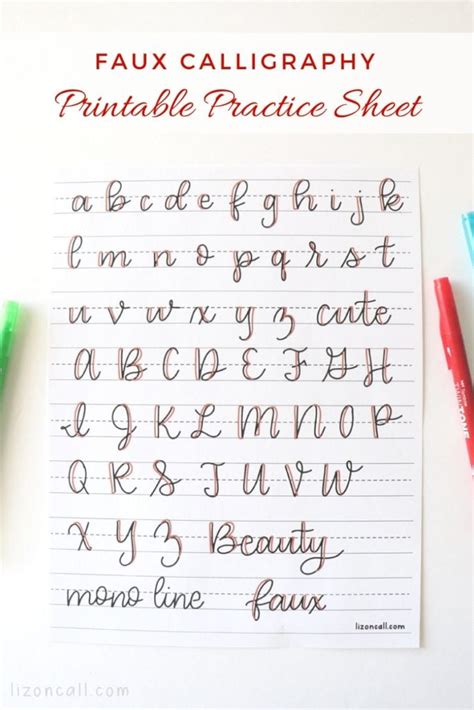 FAUX CALLIGRAPHY
Printable Practice Sheet
a b c d e f g h i j k
l m n o p q r s t
u v w x y z cute
A B C D E F G H
I J K L M N O P
Q R S T U V W
X Y Z Beauty
mono line faux
lizoncall.com
lizoncall.com